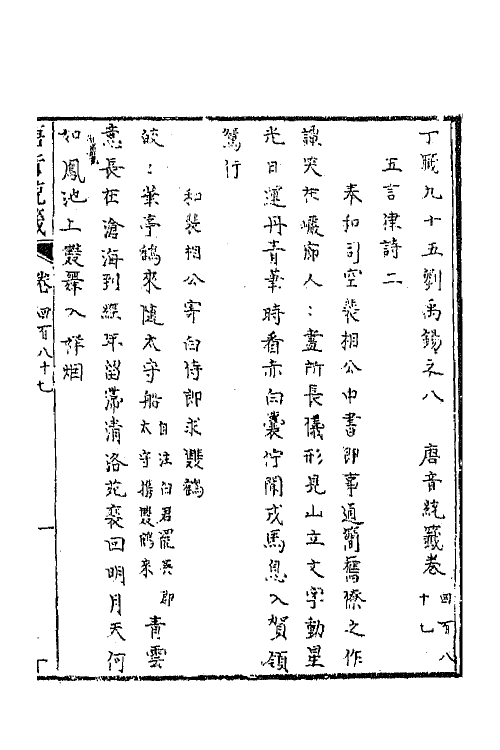 丁籖九十五劉禹錫之八　唐音統籖卷四百八十七
五言律詩二
奉和司空裴相公中書即事通簡舊僚之作
談笑在巖廊人：盡所長儀形見山立文字動星
光日運丹青筆時看赤白囊佇聞戎馬息入賀領
鴛行
和裴相公寄白侍郎求雙鶴
皎：華亭鶴來隨太守船自注白君罷吳郡太守携雙鶴來青雲
意長在滄海到經年留滯清洛苑裵回明月天何
如鳳池上雙舞入祥烟
卷四百八十七　一